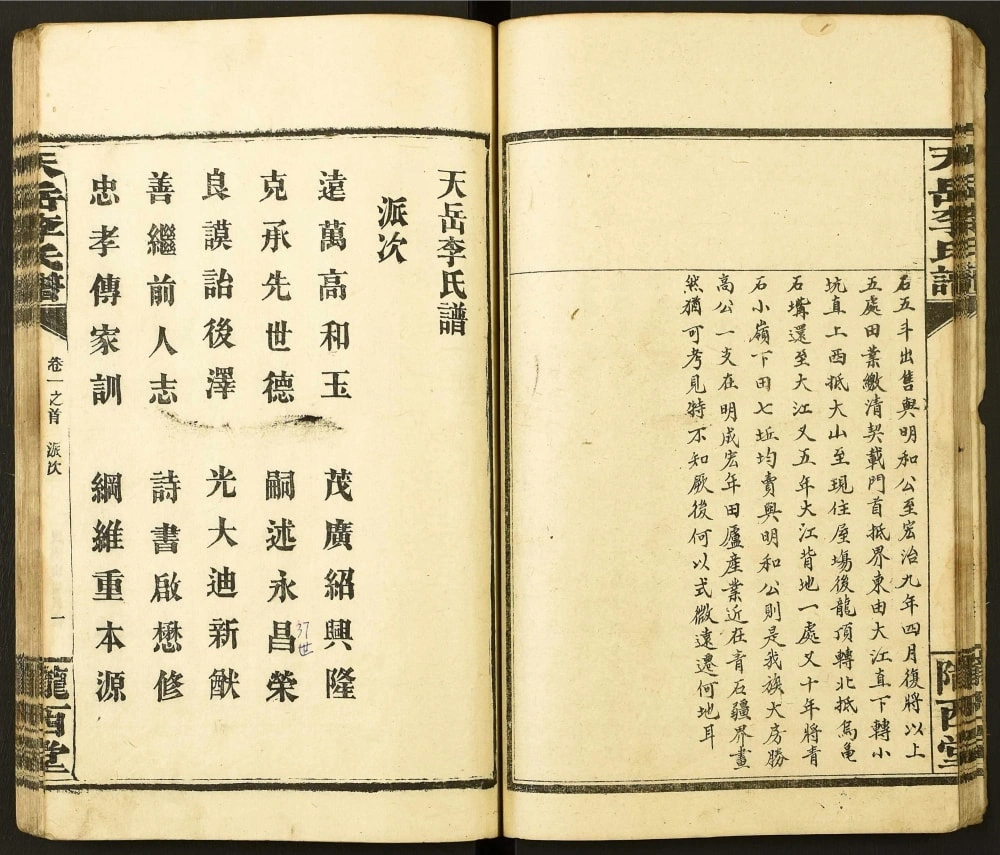 天岳李氏譜
隴西堂
石五斗出售與明和公至宏治九年四月復將以上
五處田業繳清契載門首抵界東由大江直下轉小
坑直上西抵大山至現住屋場後龍頂轉北抵烏龜
石嘴還至大江又五年大江背地一處又十年將青
石小嶺下田七坵均賣與明和公則是我族大房勝
高公一支在明成宏年田廬産業近在青石疆界畫
然猶可考見特不知厥後何以式微遠遷何地耳
天岳李氏譜
派次
遠萬高和玉 茂廣紹興隆
克承先世德 嗣述永昌榮
37世
良謨詒後澤 光大迪新猷
善繼前人志 詩書啟懋修
忠孝傳家訓 綱維重本源
天岳李氏譜
卷一之首 派次
一
隴西堂